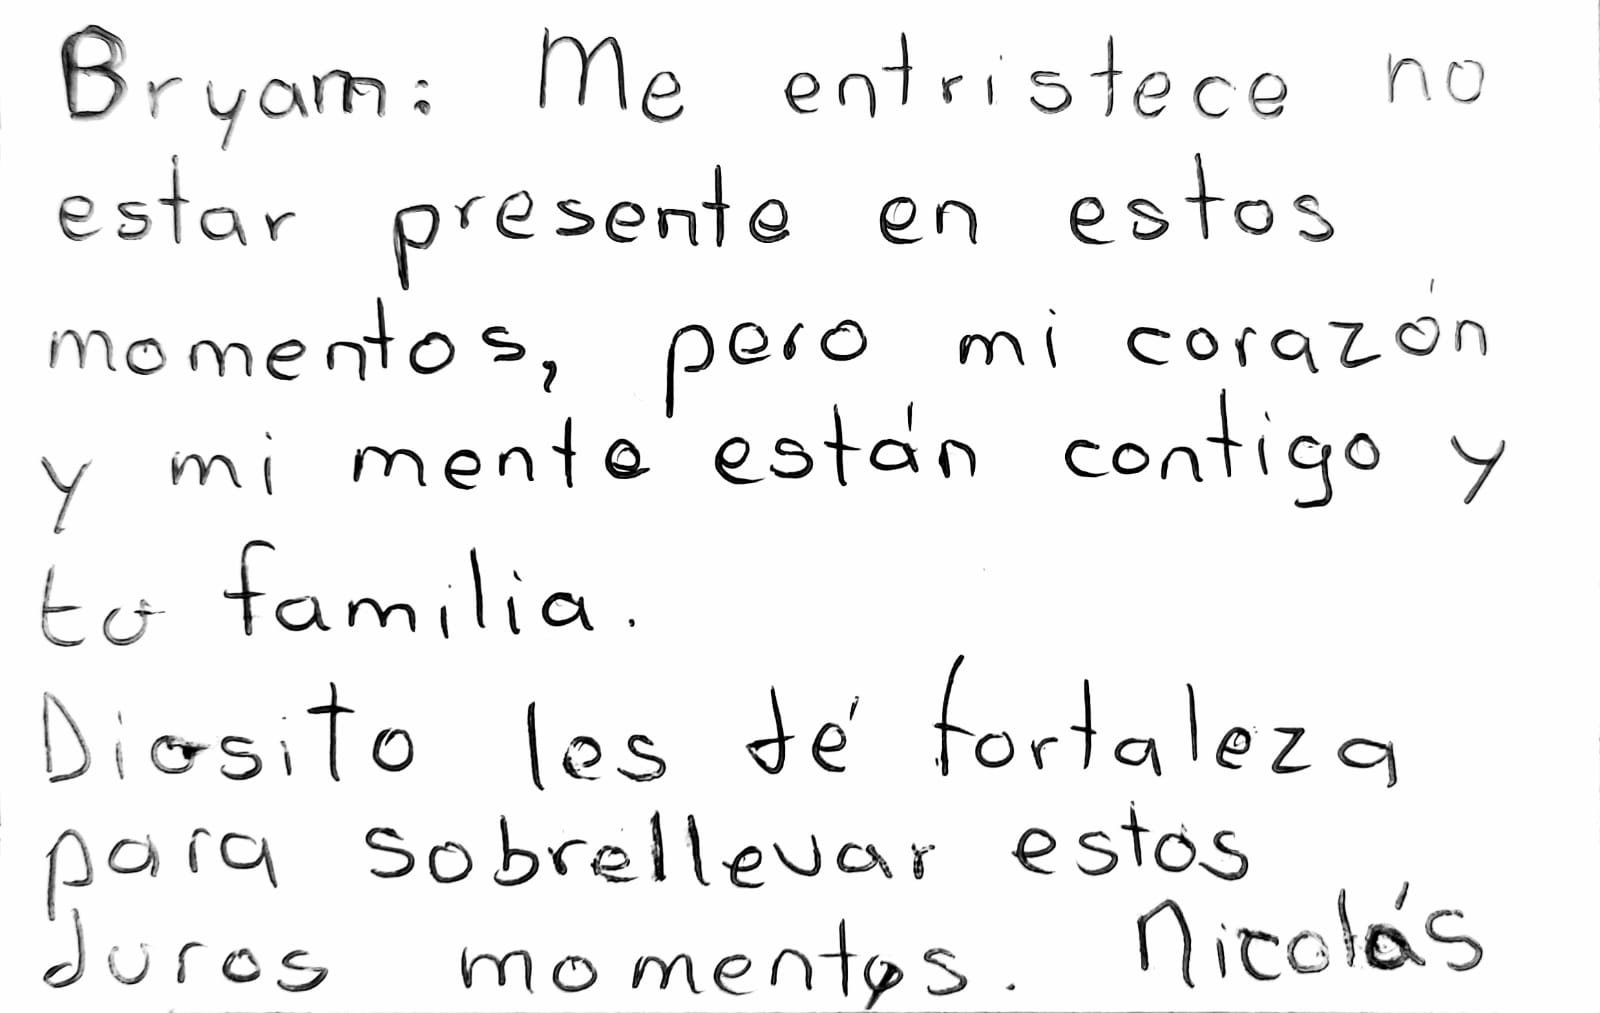 Bryam: Me entristece no
estar presente en estos
momentos, pero mi corazón
y mi mente están contigo y
tu familia.
Diosito les dé fortaleza
para sobrellevar estos
duros momentos. Nicolás